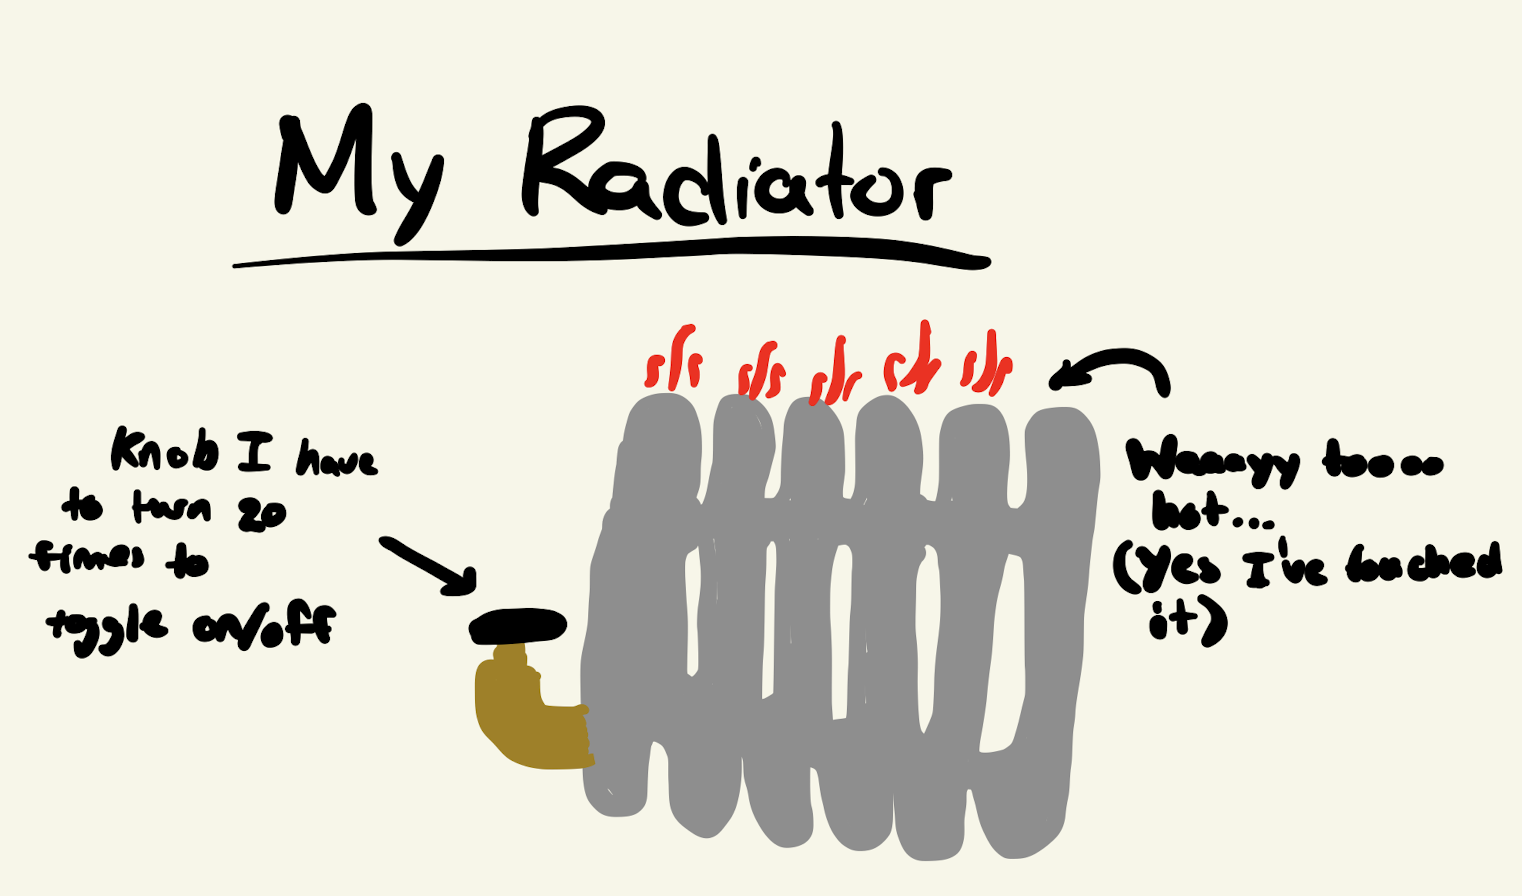 My Radiator
Knob I have
to turn 20
times to
toggle on/off
Waaayy toooo
hot...
(Yes I've touched
it)